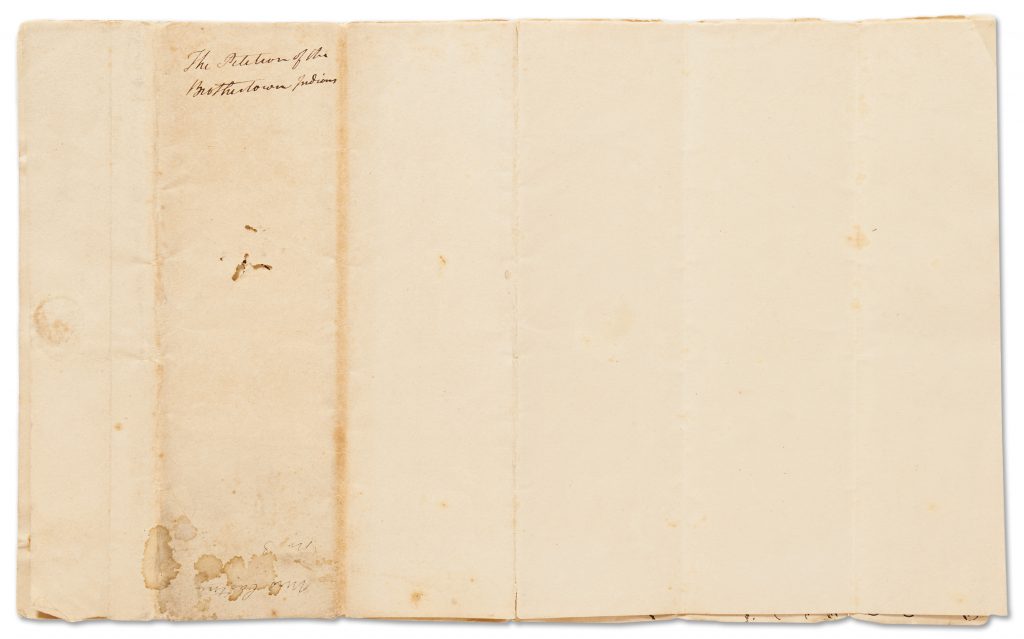 The Petition of the
Brothertown Indians